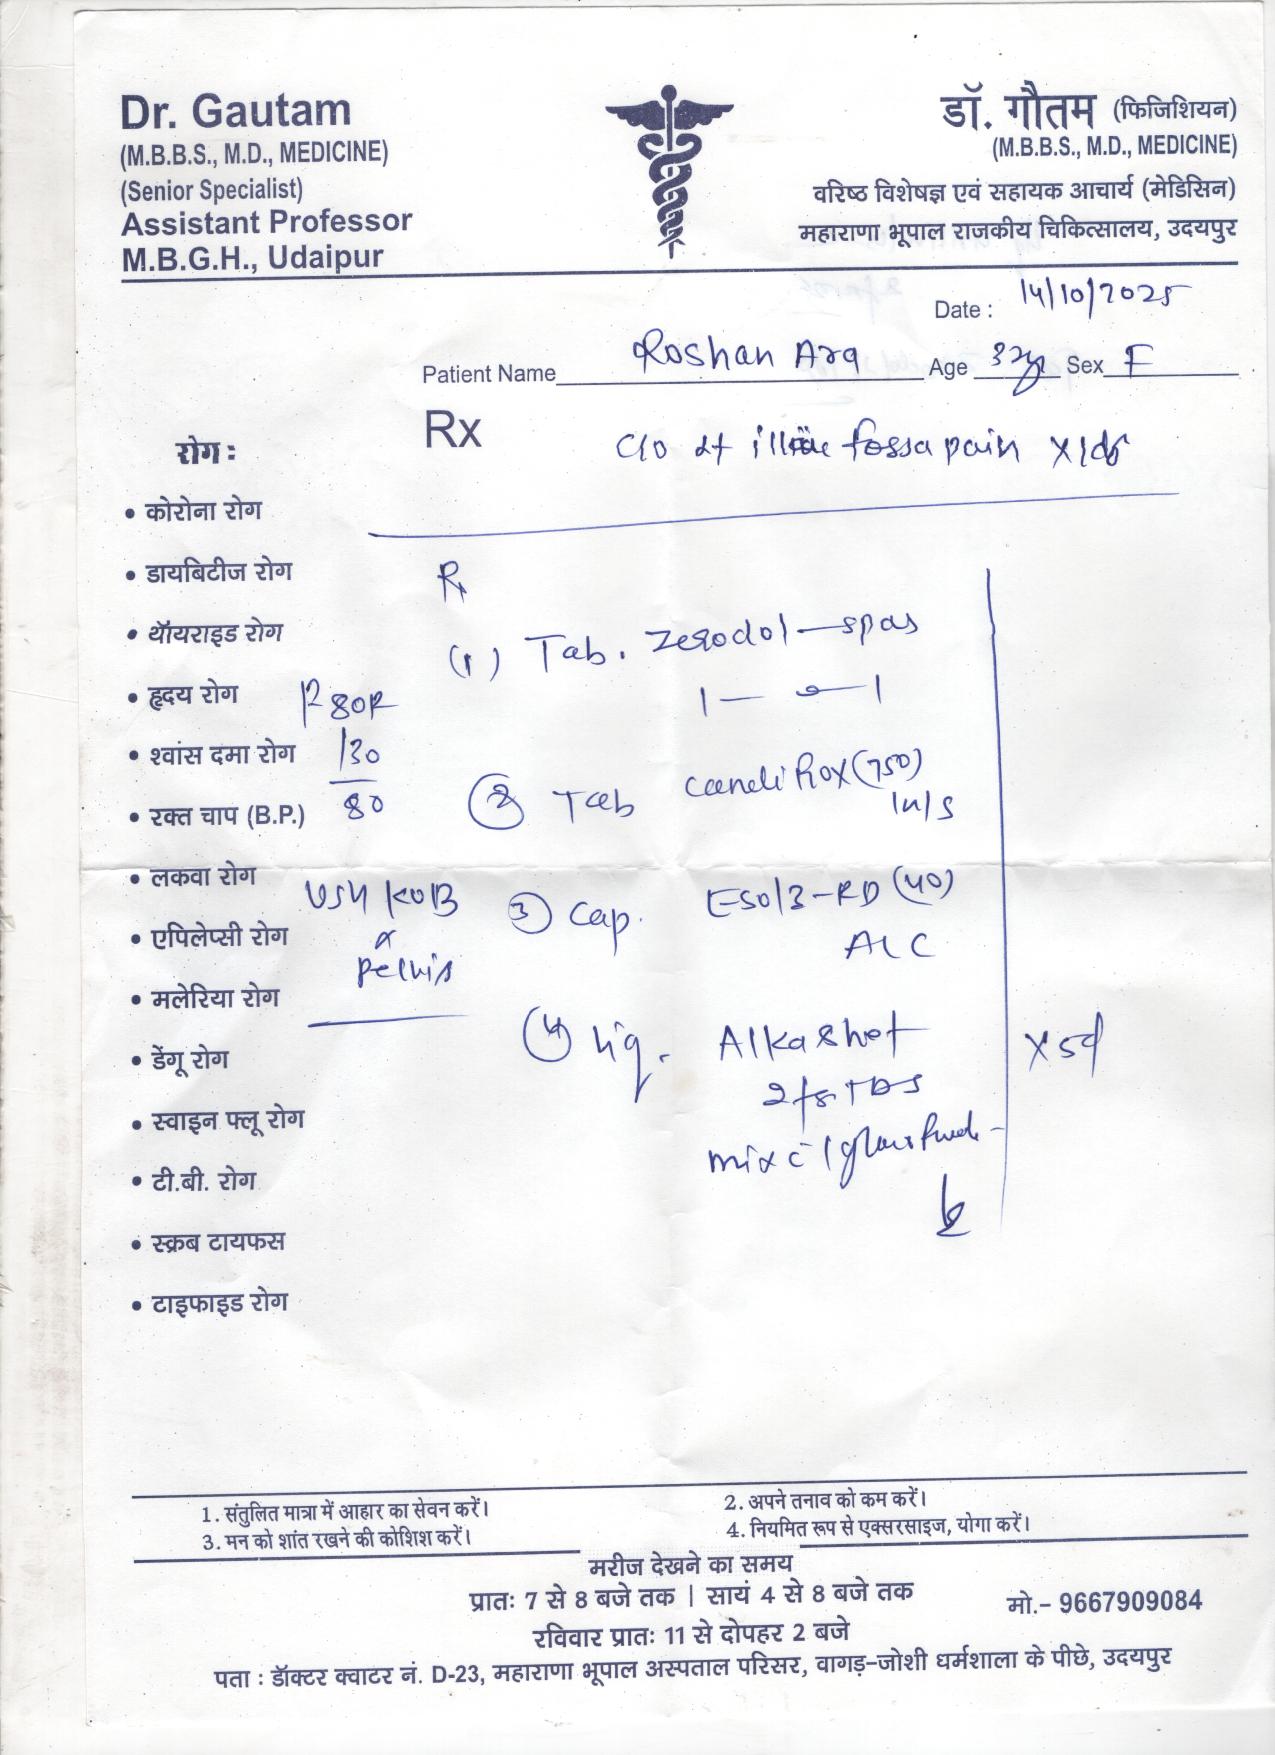 Dr. Gautam
(M.B.B.S., M.D., MEDICINE)
(Senior Specialist)
Assistant Professor
M.B.G.H., Udaipur
डॉ. गौतम (फिजिशियन)
(M.B.B.S., M.D., MEDICINE)
वरिष्ठ विशेषज्ञ एवं सहायक आचार्य (मेडिसिन)
महाराणा भूपाल राजकीय चिकित्सालय, उदयपुर
Date : 14/10/2025
Patient Name Roshan Ara Age Sex F
Rx
C/o fossa pain
रोग :
• कोरोना रोग
• डायबिटीज रोग
• थॉयराइड रोग
• हृदय रोग
• श्वांस दमा रोग
• रक्त चाप (B.P.)
• लकवा रोग
• एपिलेप्सी रोग
• मलेरिया रोग
• डेंगू रोग
• स्वाइन फ्लू रोग
• टी.बी. रोग
• स्क्रब टायफस
• टाइफाइड रोग
130
80
KUB
&
Pelvis
Rx
(1) Tab. Zerodol-spas
1 — 0 — 1
(2) Tab (750)
(3) Cap. (40)
(4) Liq. Alkashot
TDS
mix c̄ 1 glass
1. संतुलित मात्रा में आहार का सेवन करें।
2. अपने तनाव को कम करें।
3. मन को शांत रखने की कोशिश करें।
4. नियमित रूप से एक्सरसाइज, योगा करें।
मरीज देखने का समय
प्रातः 7 से 8 बजे तक | सायं 4 से 8 बजे तक
मो.- 9667909084
रविवार प्रातः 11 से दोपहर 2 बजे
पता : डॉक्टर क्वाटर नं. D-23, महाराणा भूपाल अस्पताल परिसर, वागड़-जोशी धर्मशाला के पीछे, उदयपुर